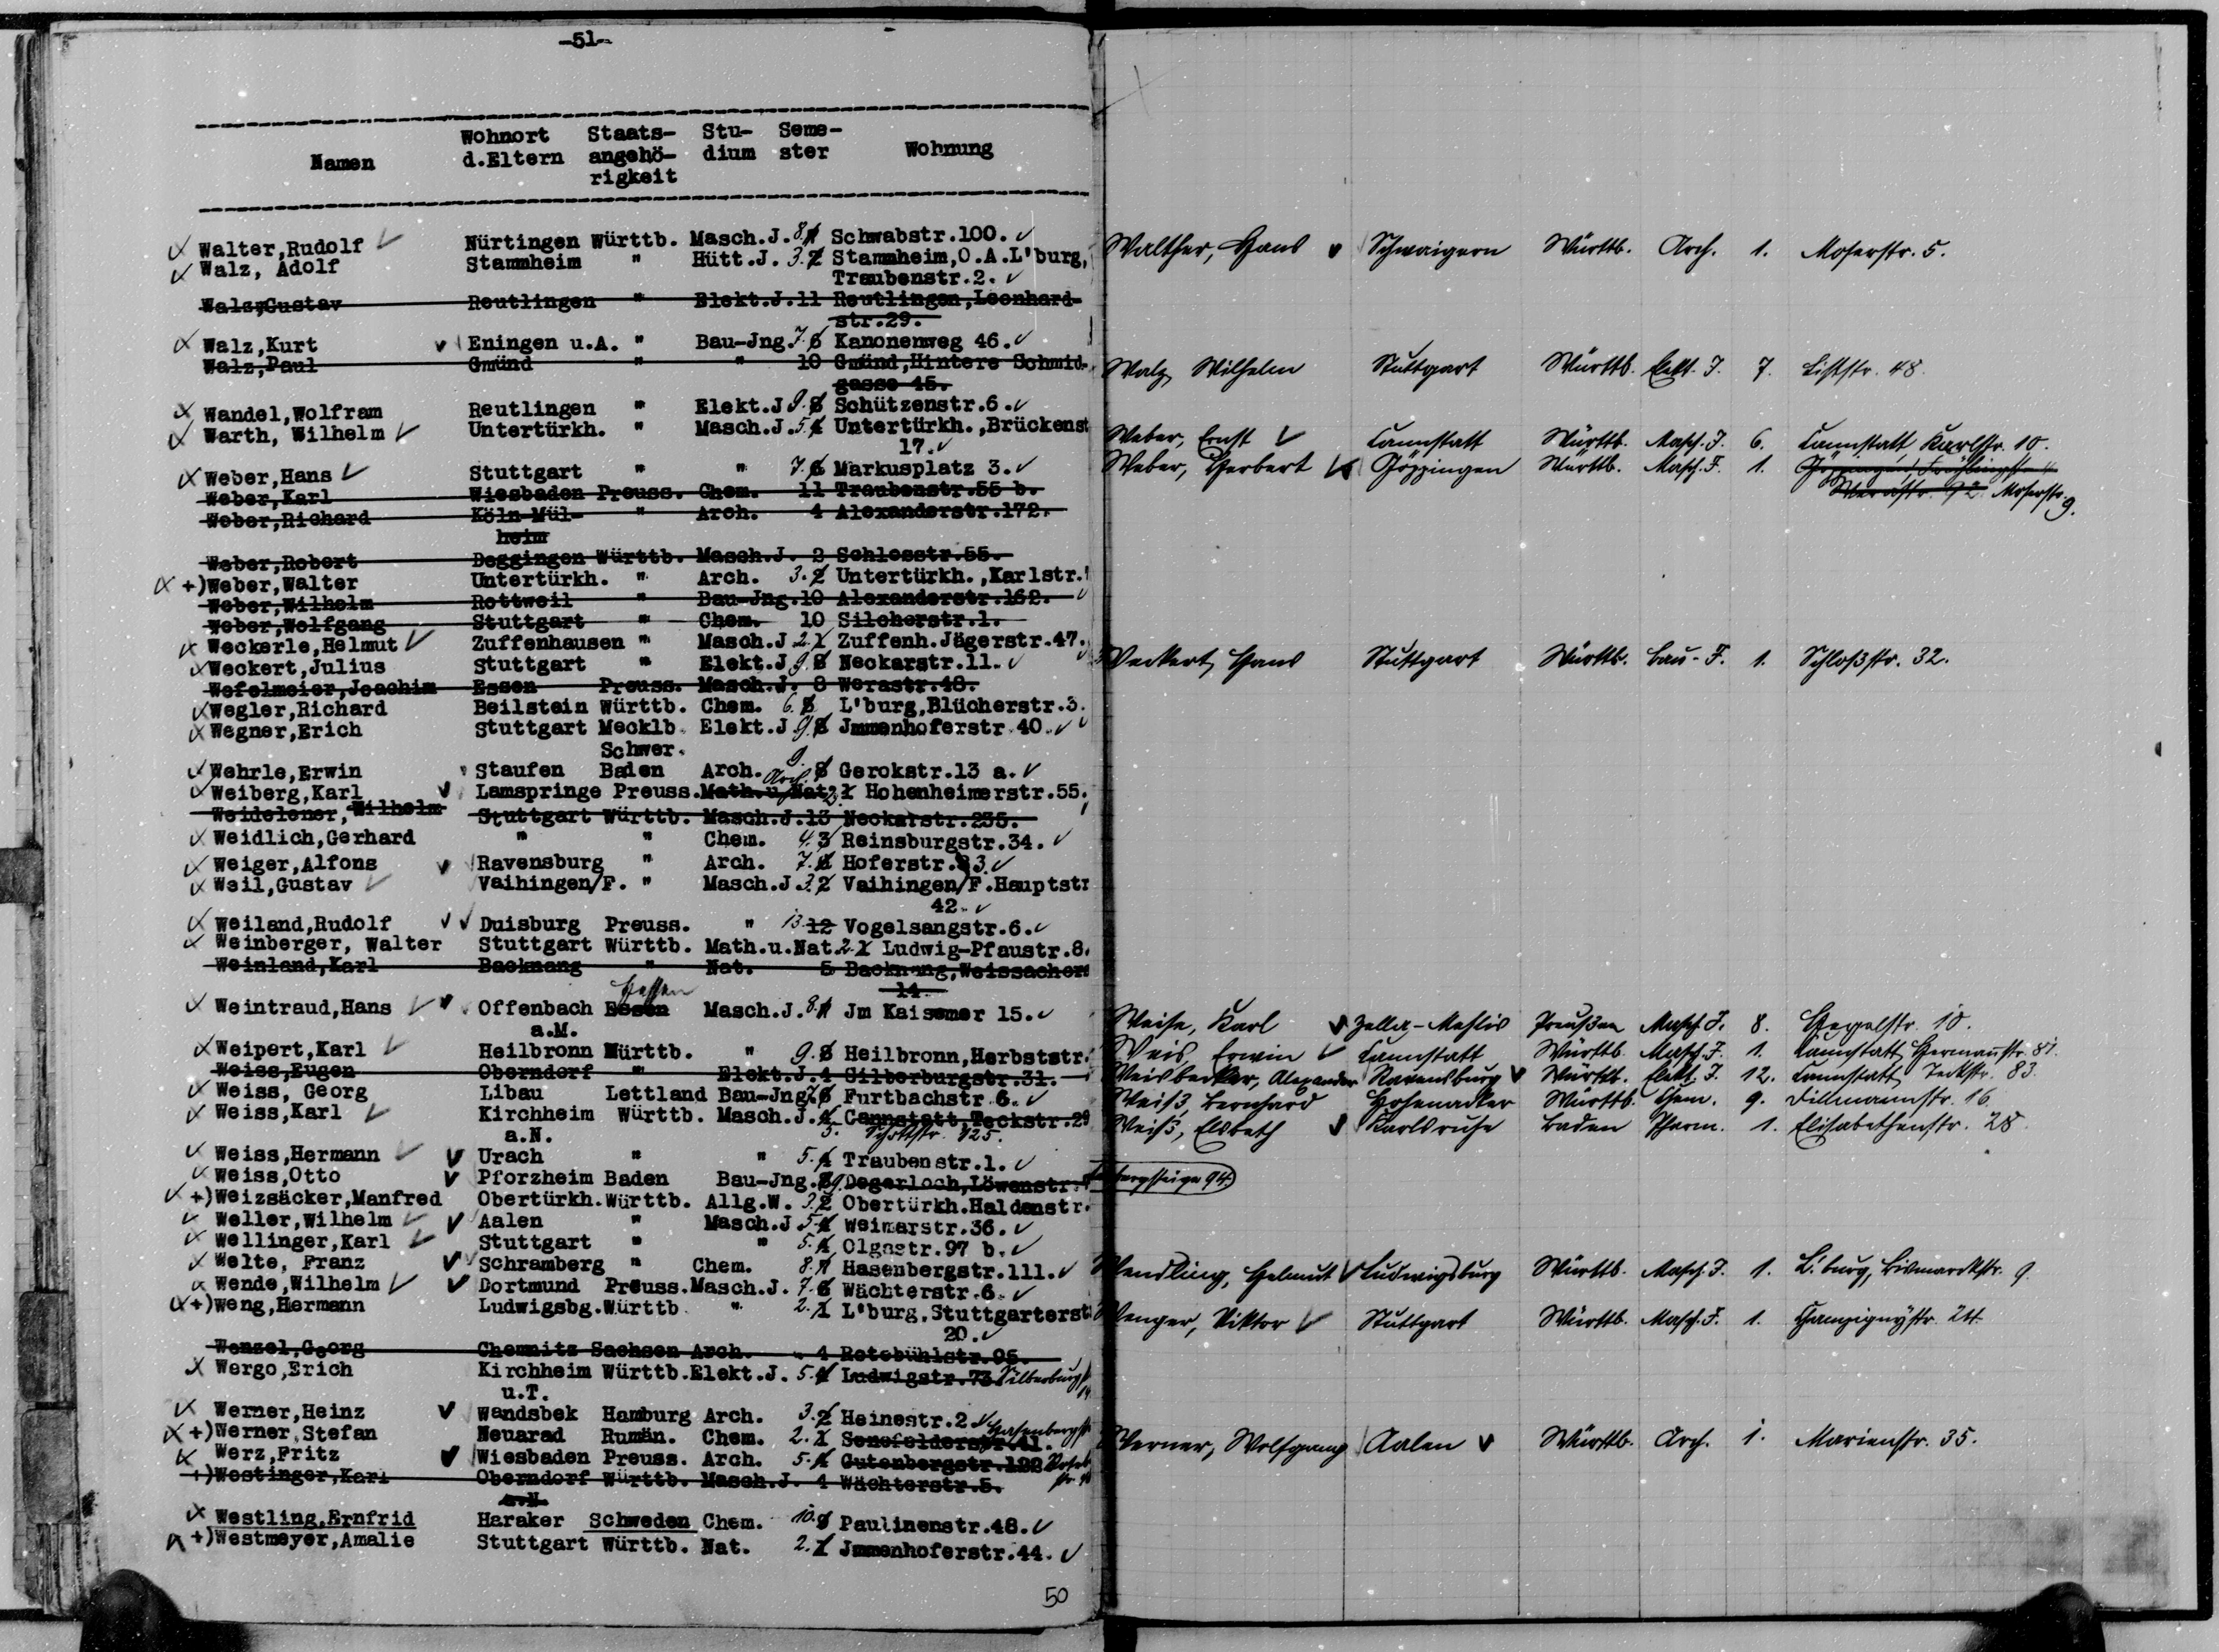 -51-
Namen Wohnort d.Eltern Staats-angehö-rigkeit Stu-dium Seme-ster Wohnung
Walter,Rudolf Nürtingen Württb. Masch.J. 8. Schwabstr.100.
Walz, Adolf Stammheim " Hütt.J. 3. 2 Stammheim,O.A.L'burg,
Traubenstr.2.
Walz,Gustav Reutlingen " Elekt.J.11 Reutlingen,Leonhard-
str.29.
Walz,Kurt Eningen u.A. " Bau-Jng. 7. 6 Kanonenweg 46.
Walz,Paul Gmünd " " 10 Gmünd,Hintere Schmid-
gasse 45.
Wandel,Wolfram Reutlingen " Elekt.J 9. 8 Schützenstr.6.
Warth, Wilhelm Untertürkh. " Masch.J. 5. 4 Untertürkh.,Brückenst
17.
Weber,Hans Stuttgart " " 7. 6 Markusplatz 3.
Weber,Karl Wiesbaden Preuss. Chem. 11 Traubenstr.55 b.
Weber,Richard Köln-Mül- " Arch. 4 Alexanderstr.172.
heim
Weber,Robert Deggingen Württb. Masch.J. 2 Schlosstr.55.
+)Weber,Walter Untertürkh. " Arch. 3. 2 Untertürkh.,Karlstr.
Weber,Wilhelm Rottweil " Bau-Jng.10 Alexanderstr.162.
Weber,Wolfgang Stuttgart " Chem. 10 Silcherstr.1.
Weckerle,Helmut Zuffenhausen " Masch.J 2. 1 Zuffenh.Jägerstr.47.
Weckert,Julius Stuttgart " Elekt.J 9. 8 Neckarstr.11.
Wefelmeier,Joachim Essen Preuss. Masch.J. 8 Werastr.48.
Wegler,Richard Beilstein Württb. Chem. 6. 5 L'burg,Blücherstr.3.
Wegner,Erich Stuttgart Mecklb. Elekt.J 9. 8 Jmmenhoferstr.40.
Schwer.
Wehrle,Erwin Staufen Baden Arch. 9. 8 Gerokstr.13 a.
Weiberg,Karl Lamspringe Preuss. Math.u.Nat Arch. 2. 1 Hohenheimerstr.55.
Weidelener,Wilhelm Stuttgart Württb. Masch.J.13 Neckarstr.235.
Weidlich,Gerhard " " Chem. 4. 3 Reinsburgstr.34.
Weiger,Alfons Ravensburg " Arch. 7. 6 Hoferstr. 3.
Weil,Gustav Vaihingen/F. " Masch.J 3. 2 Vaihingen/F.Hauptstr
42.
Weiland,Rudolf Duisburg Preuss. " 13. 12 Vogelsangstr.6.
Weinberger, Walter Stuttgart Württb. Math.u.Nat. 2. 1 Ludwig-Pfaustr.8.
Weinland,Karl Backnang " Nat. 5 Backnang,Weissacher
14.
Weintraud,Hans Offenbach Essen Hessen Masch.J. 8. 7 Jm Kaisemer 15.
a.M.
Weipert,Karl Heilbronn Württb. " 9. 8 Heilbronn,Herbststr.
Weiss,Eugen Oberndorf " Elekt.J.4 Silberburgstr.31.
Weiss, Georg Libau Lettland Bau-Jng 7. 6 Furtbachstr.6.
Weiss,Karl Kirchheim Württb. Masch.J. 4 Cannstatt,Teckstr.29
a.N. 5. Schottstr. 125.
Weiss,Hermann Urach " " 5. 4 Traubenstr.1.
Weiss,Otto Pforzheim Baden Bau-Jng. 9. Degerloch,Löwenstr.
+)Weizsäcker,Manfred Obertürkh.Württb. Allg.W. 3. 2 Obertürkh.Haldenstr.
Weller,Wilhelm Aalen " Masch.J 5. 4 Weimarstr.36.
Wellinger,Karl Stuttgart " " 5. 4 Olgastr.97 b.
Welte, Franz Schramberg " Chem. 8. 7 Hasenbergstr.111.
Wende,Wilhelm Dortmund Preuss.Masch.J. 7. 6 Wächterstr.6.
+)Weng,Hermann Ludwigsbg.Württb. " 2. 1 L'burg.Stuttgarterst
20.
Wenzel,Georg Chemnitz Sachsen Arch. 4 Rotebühlstr.95.
Wergo,Erich Kirchheim Württb.Elekt.J. 5. 4 Ludwigstr.73 Silberburgstr
u.T.
Werner,Heinz Wandsbek Hamburg Arch. 3. 2 Heinestr.2
+)Werner,Stefan Neuarad Rumän. Chem. 2. 1 Senefelderstr.41. Hasenbergstr
Werz,Fritz Wiesbaden Preuss. Arch. 5. 4 Gutenbergstr.122
+)Westinger,Karl Oberndorf Württb. Masch.J. 4 Wächterstr.5.
a.N.
Westling,Ernfrid Haraker Schweden Chem. 10. 9 Paulinenstr.48.
+)Westmeyer,Amalie Stuttgart Württb. Nat. 2. 1 Jmmenhoferstr.44.
50
Walther, Hans Schwaigern Württb. Arch. 1. Moserstr. 5.
Walz, Wilhelm Stuttgart Württb. Elekt. J. 7. Liststr. 48.
Weber, Ernst Cannstatt Württb. Masch. J. 6. Cannstatt Karlstr. 10.
Weber, Herbert Göppingen Württb. Masch. J. 1. Göppingen, Frühlingstr.
Werastr. 92 Moserstr. 9.
Weckert, Hans Stuttgart Württb. Bau-J. 1. Schloßstr. 32.
Weise, Karl Zella-Mehlis Preußen Masch. J. 8. Hegelstr. 10.
Weis, Erwin Cannstatt Württb. Masch. J. 1. Cannstatt, Hermannstr.
Weisbecker, Alexander Ravensburg Württb. Elekt. J. 12. Cannstatt Teckstr. 83.
Weiß, Bernhard Hofenacker Württb. Chem. 9. Dillmannstr. 16.
Weiß, Elsbeth Karlsruhe Baden Pharm. 1. Elisabethenstr. 28.
bergsteige 94
Wendling, Helmut Ludwigsburg Württb. Masch. J. 1. L'burg, Bismarckstr. 9.
Wenger, Viktor Stuttgart Württb. Masch. J. 1. Champignystr. 24.
Werner, Wolfgang Aalen Württb. Arch. 1. Marienstr. 35.